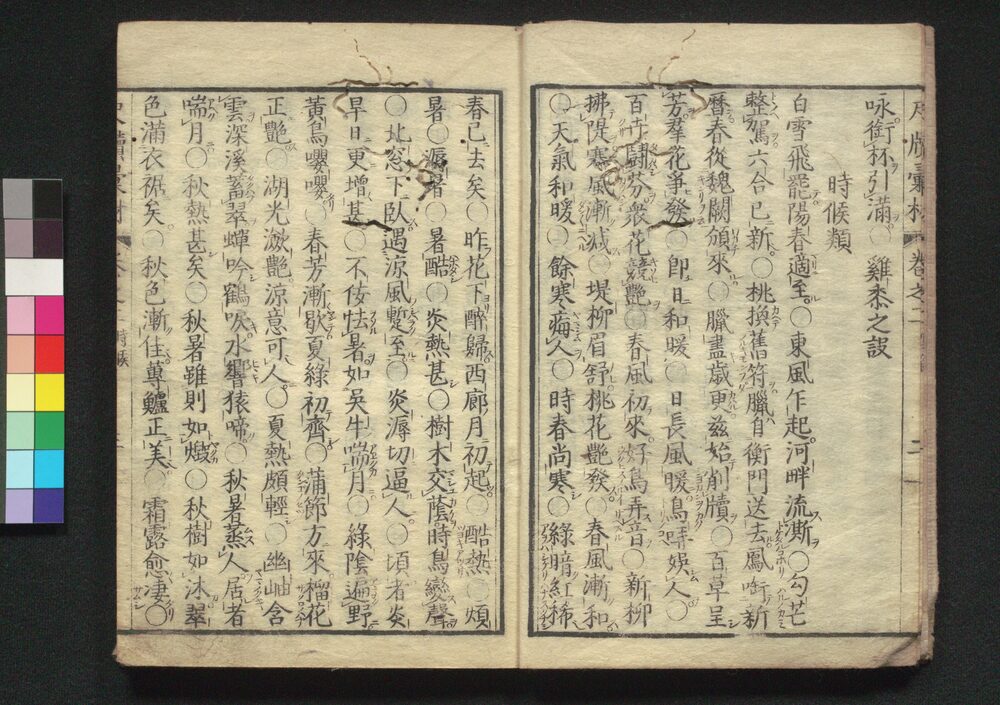 尺牘彙材 卷之二
咏銜杯引滿○雞黍之設
時候類
白雪飛罷陽春適至○東風乍起河畔流澌○勾芒
整駕六合已新○桃換舊符臘自衡門送去鳳啣新
曆春從魏闕頒來○臘盡歲更茲始削牘○百草呈
芳羣花爭發○卽日和暖○日長風暖鳥啼娛人○
百卉鬪芬衆花競艷○春風初來好鳥弄音○新柳
拂隄寒風漸减○堤柳眉舒桃花艷發○春風漸和
○天氣和暖○餘寒侮人○時春尚寒○綠暗紅稀
春已去矣○昨花下醉歸西廊月初起○酷熱○煩
暑○溽暑○暑酷○炎熱甚○樹木交蔭時鳥變聲
○北窓下臥遇涼風蹔至○炎溽切逼人○頃者炎
旱日更增甚○不佞怯暑如吳牛喘月○綠陰遍野
黃鳥嚶嚶○春芳漸歇夏綠初齊○蒲節方來榴花
正艷○湖光瀲艷涼意可人○夏熱頗輕○幽岫含
雲深溪蓄翠蟬吟鶴唳水響猿啼○秋暑蒸人居者
喘月○秋熱甚矣○秋暑雖則如燬○秋樹如沐翠
色滿衣裾矣○秋色漸佳蓴鱸正美○霜露愈凄○